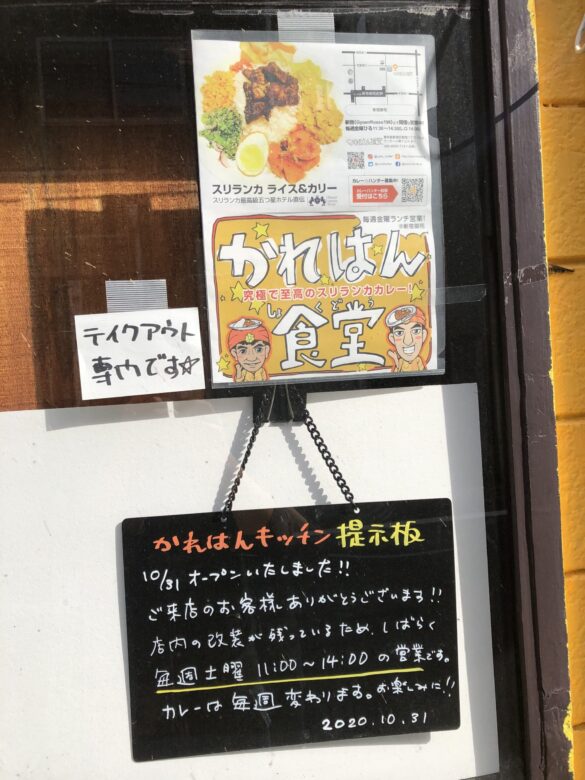 スリランカ ライス&カリー
スリランカ最高級五つ星ホテル直伝
毎週金曜ランチ営業!
かれはん
究極で至高のスリランカカレー!
しょくどう
食堂
テイクアウト
専門です☆
かれはんキッチン 提示板
10/31 オープンいたしました!!
ご来店のお客様ありがとうございます!!
店内の改装が残っているため、しばらく
毎週土曜 11:00〜14:00 の営業です。
カレーは毎週変わります。お楽しみに!!
2020.10.31